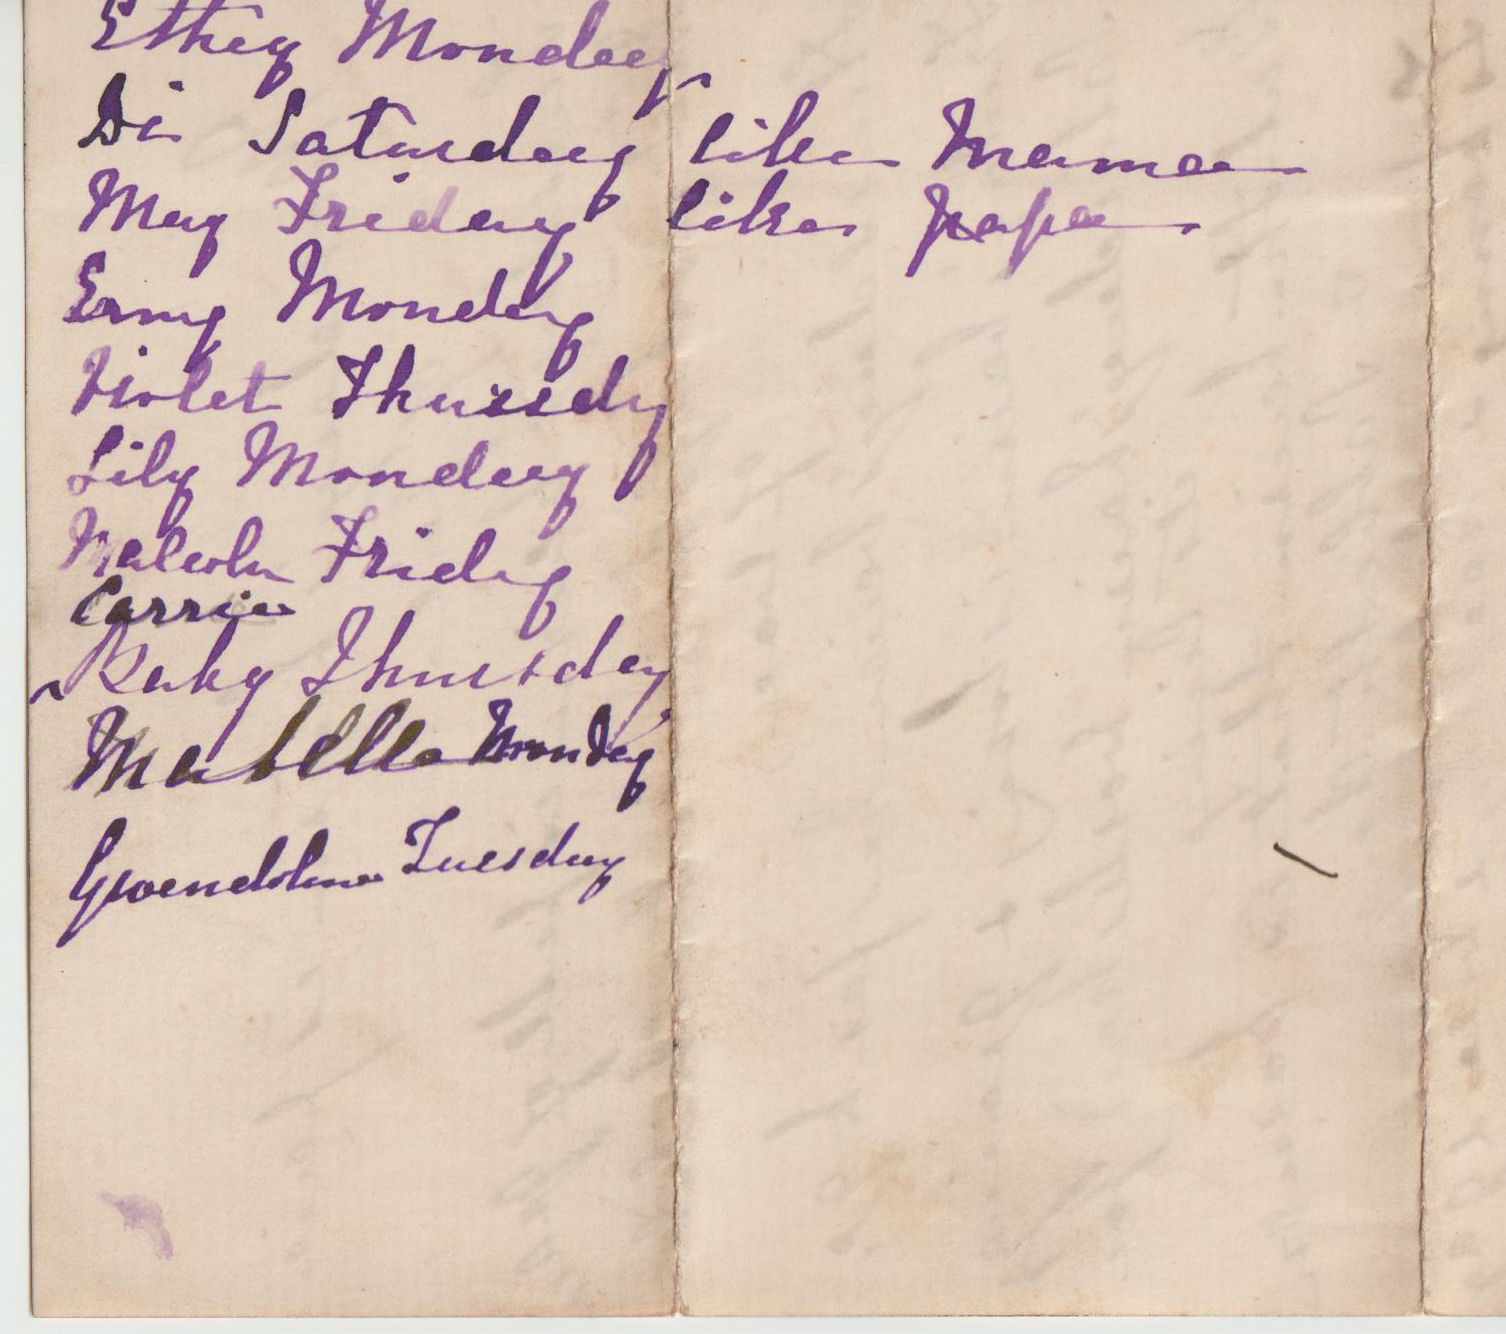 Ethey Monday
Di Saturday like Mama
May Friday like papa
Erny Monday
Violet Thursdy
Lily Monday
Malcolm Friday
Carrie
Ruby Thursday
Mabella Monday
Gwendoline Tuesday